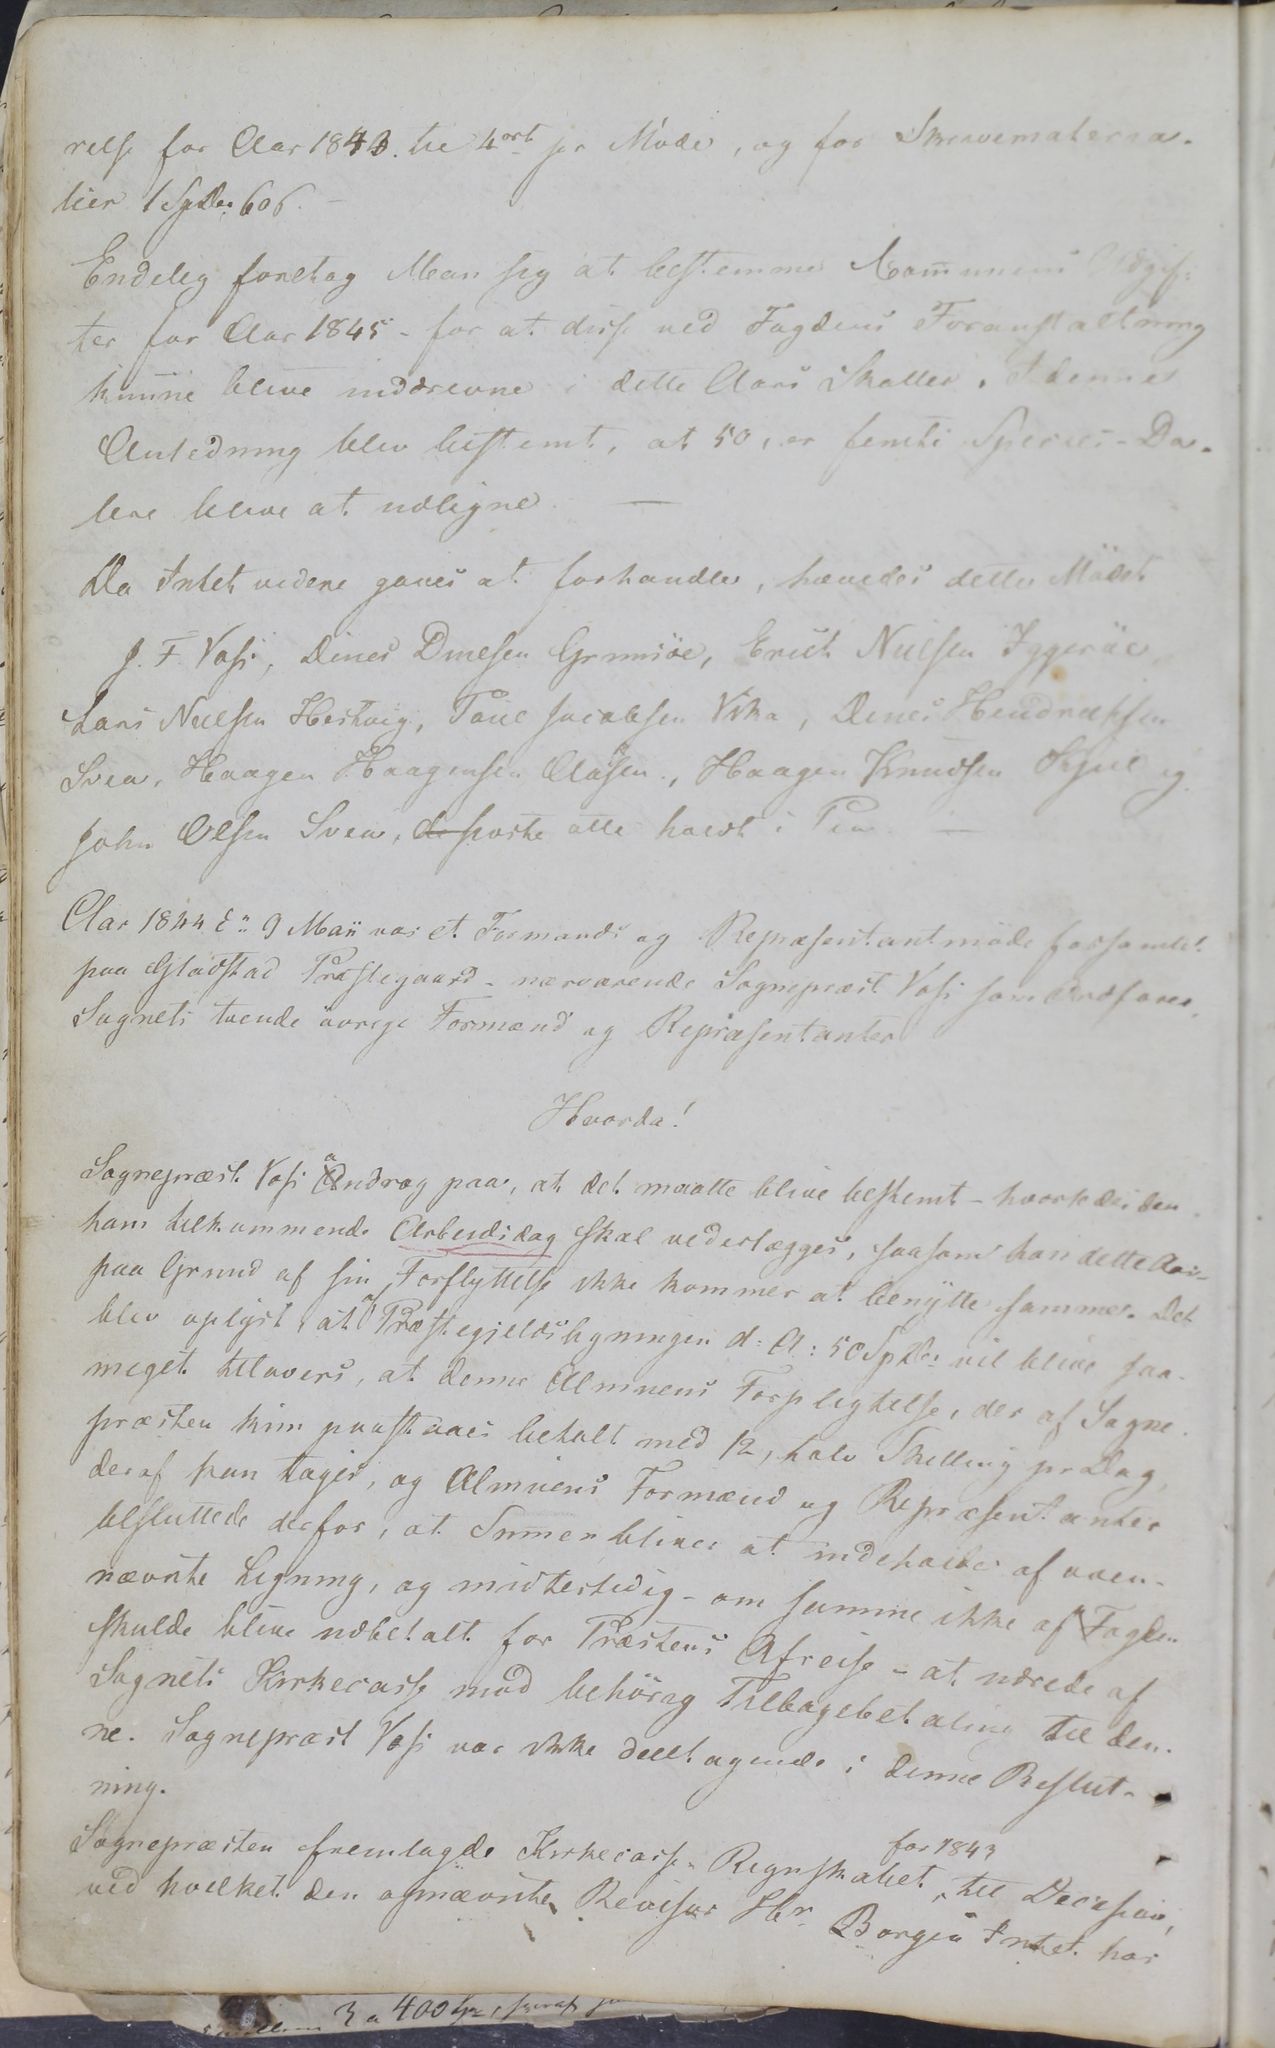 relse for Aar 1843. til 4 ort pr Møde, og for Skrivemateria-
lier 1 Spdlr, 606. -
Endelig foretog Man sig at bestemme Communens Udgif-
ter for Aar 1845 - for at disse ved Fogdens Foranstaltning
kunne blive inddrevne i dette Aars Skatter. I denne
Anledning blev bestemt, at 50, er femti Species-Da-
lere blive at udligne. —
Da Intet videre gaves at forhandle, hævedes dette Møde
J. F. Voss, Dines Dinesen Grimsöe, Erich Nielsen Iggeröe,
Lars Nielsen Hestvig, Poul Jacobsen Vika, Dines Hendrichsen
Svea, Haagen Haagensen Aasen, Haagen Knudsen Skjul og
John Olsen Svea, de sidste alle holdt i Pen. —
Aar 1844 d. 9 Maii var et Formands og Repræsentantmøde forsamlet
paa Gladstad Præstegaard - nærværende Sognepræst Voss som Ordfører,
Sognets tvende övrige Formænd og Repræsentanter
Hvorda!
Sognepræst Voss androg paa, at det maatte blive bestemt - hvorledes den
ham tilkommende Arbeidsdag skal vederlægges, saasom han dette Aar -
paa Grund af sin Forflyttelse ikke kommer at benytte samme. Det
blev oplyst, at af Præstegjeldsligningen d: A: 50 Spdlr vil blive saa-
meget tilovers, at denne Almuens Forpligtelse, der af Sogne-
præsten kun paastaaes betalt med 12, tolv Skilling pr Dag,
deraf kan tages, og Almuens Formænd og Repræsentanter
besluttede derfor, at Sumen bliver at indeholde af oven-
nævnte Ligning, og midlertidig - om samme ikke af Fogden
skulde blive udbetalt for Præstens Afreise - at udrede af
Sognets Kirkecasse mod behörig Tilbagebetaling til den-
ne. Sognepræst Voss var ikke deeltagende i denne Beslut-
ning.
Sognepræsten fremlagde Kirkecasse-Regnskabet for 1843 til Decision,
ved hvilket den opnævnte Revisor Hr. Borgen Intet har
3 a 400